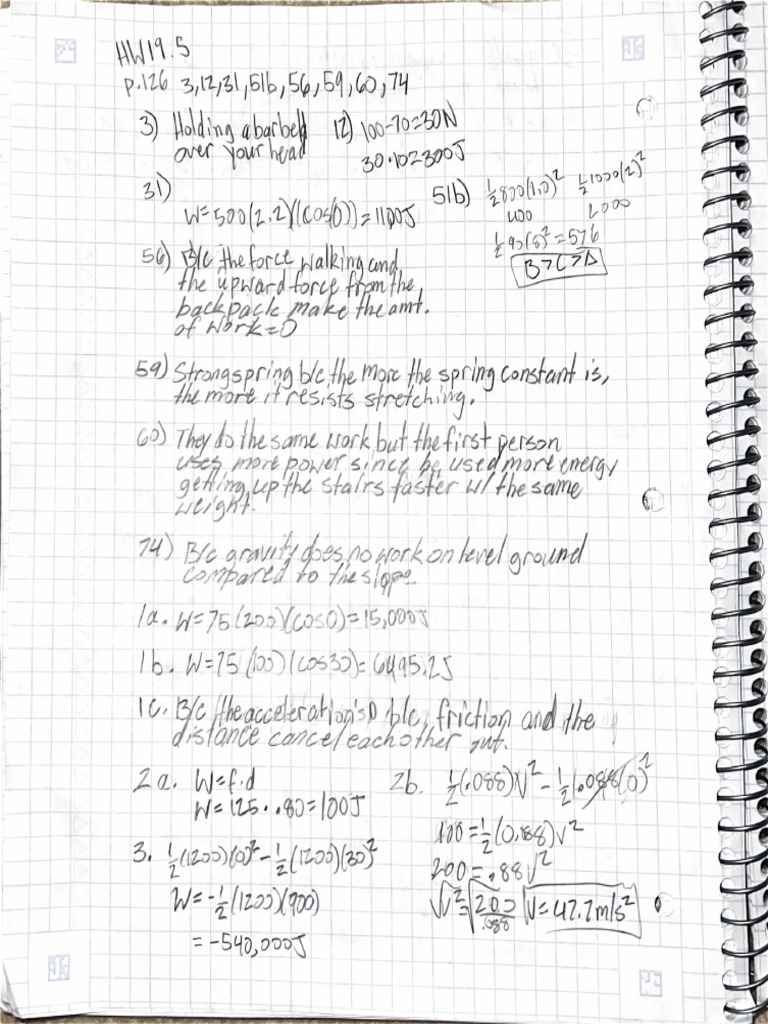 HW19.5
p.126 3,12,31,51b,56,59,60,74
3) Holding a barbell
over your head
12) 100-70=30N
30·10=300J
31)
W=500(2.2)(cos(0))=1100J
51b) ½800(1.0)² ½1000(2)²
400 2000
½ (8)²=576
B>C>A
56) B/c the force walking and
the upward force from the
backpack make the amt.
of work=0
59) Strong spring b/c the more the spring constant is,
the more it resists stretching.
60) They do the same work but the first person
uses more power since he used more energy
getting up the stairs faster w/ the same
weight.
74) B/c gravity does no work on level ground
compared to the slope.
1a. W=75(200)(cos0)=15,000J
1b. W=75(100)(cos30)=6495.2J
1c. B/c the acceleration's 0 b/c friction and the
distance cancel each other out.
2a. W=f·d
W=125·.80=100J
2b. ½(.088)V²-½(.088)(0)²
100=½(0.88)v²
200=.88v²
√v²=√200/.088 V=47.7m/s²
3. ½(1200)(0)²-½(1200)(30)²
W=-½(1200)(900)
=-540,000J